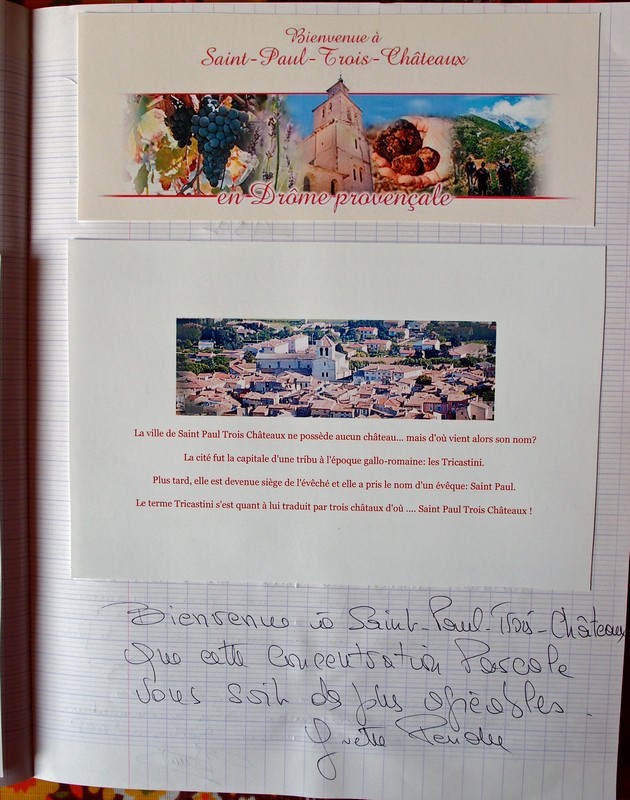 Bienvenue à
Saint-Paul-Trois-Châteaux
en Drôme provençale
La ville de Saint Paul Trois Châteaux ne possède aucun château... mais d'où vient alors son nom?
La cité fut la capitale d'une tribu à l'époque gallo-romaine: les Tricastini.
Plus tard, elle est devenue siège de l'évêché et elle a pris le nom d'un évêque: Saint Paul.
Le terme Tricastini s'est quant à lui traduit par trois châtaux d'où .... Saint Paul Trois Châteaux !
Bienvenue à Saint-Paul-Trois-Châteaux
Que cette Concentration Pascale
vous soit des plus agréables.